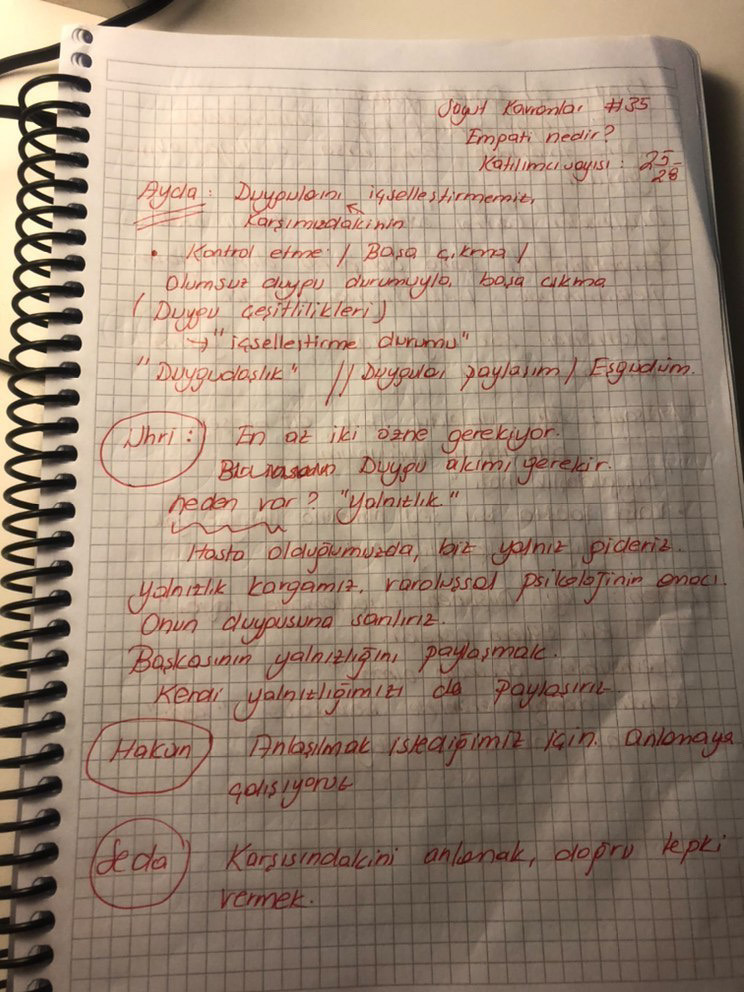 Soyut Kavramlar #35
Empati nedir?
Katılımcı sayısı: 25-28
Ayda: Duygularını içselleştirmemiz,
Karşımızdakinin
• Kontrol etme / Başa çıkma /
Olumsuz duygu durumuyla, başa çıkma
(Duygu çeşitlilikleri)
→ "içselleştirme durumu"
"Duygudaşlık" // Duygular paylaşım / Eşgüdüm.
En az iki özne gerekiyor.
Duygu akımı gerekir.
neden var? "Yalnızlık"
Hasta olduğumuzda, biz yalnız gideriz.
Yalnızlık kargamız, varoluşsal psikolojinin amacı.
Onun duygusuna sarılırız.
Başkasının yalnızlığını paylaşmak.
Kendi yalnızlığımızı da paylaşırız.
Hakan Anlaşılmak istediğimiz için. anlamaya
çalışıyoruz
Seda Karşısındakini anlamak, doğru tepki
vermek.